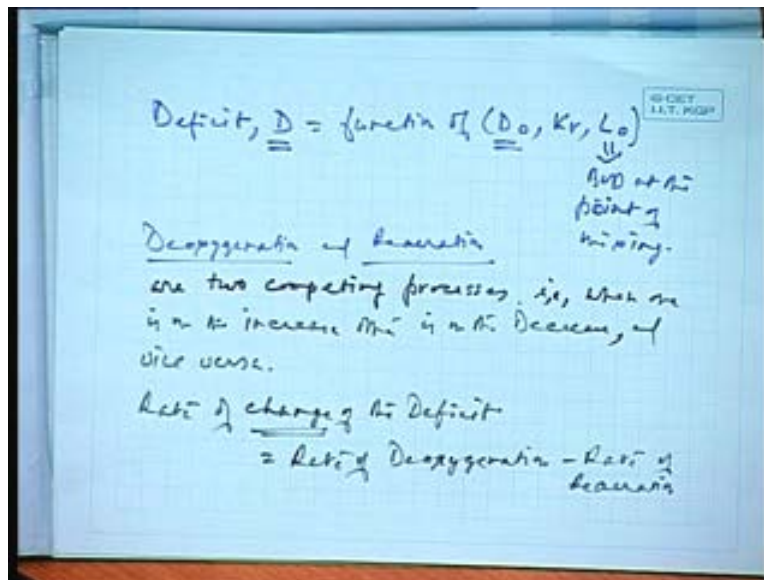 © CET
I.I.T. KGP
Deficit, D = function of (D₀, Kr, L₀)
BOD at the
point of
mixing.
Deoxygenation and Reaeration
are two competing processes. i.e, when one
is on the increase other is on the Decrease, and
vice versa.
Rate of change of the Deficit
= Rate of Deoxygenation – Rate of
Reaeration